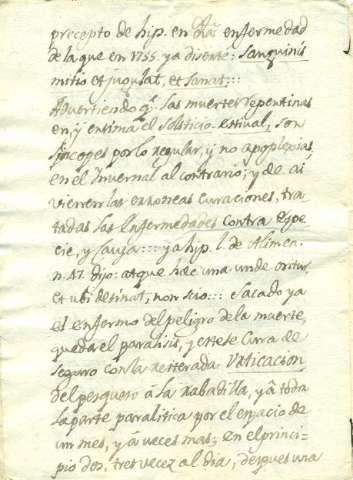 precepto de hip. en dha enfermedad
de la que en 1755. ya disente: Sanguinis
mitio et jugulat, et Sanat,::
Advertiendo q.e las muertes repentinas
en, y entima el Solsticio estival, son
Sincopes por lo regular, y no apoplexias,
en el Invernal al contrario; y de ai
vienen las erroneas curaciones, tra
tadas las Enfermedades contra Espe
cie, y Causa::: ya hip. l. de Alimen.
n. 17. dijo: atque hæc una unde oritur,
et ubi desinat, non scio::: Sacado ya
el enfermo del peligro de la muerte,
queda el paralisis, y este se Cura de
Seguro con la reiterada Urticacion
del pesquero á la rabadilla, y á toda
la parte paralitica por el espacio de
un mes, y á veces mas; en el princi-
pio dos, tres vezes al dia, despues una